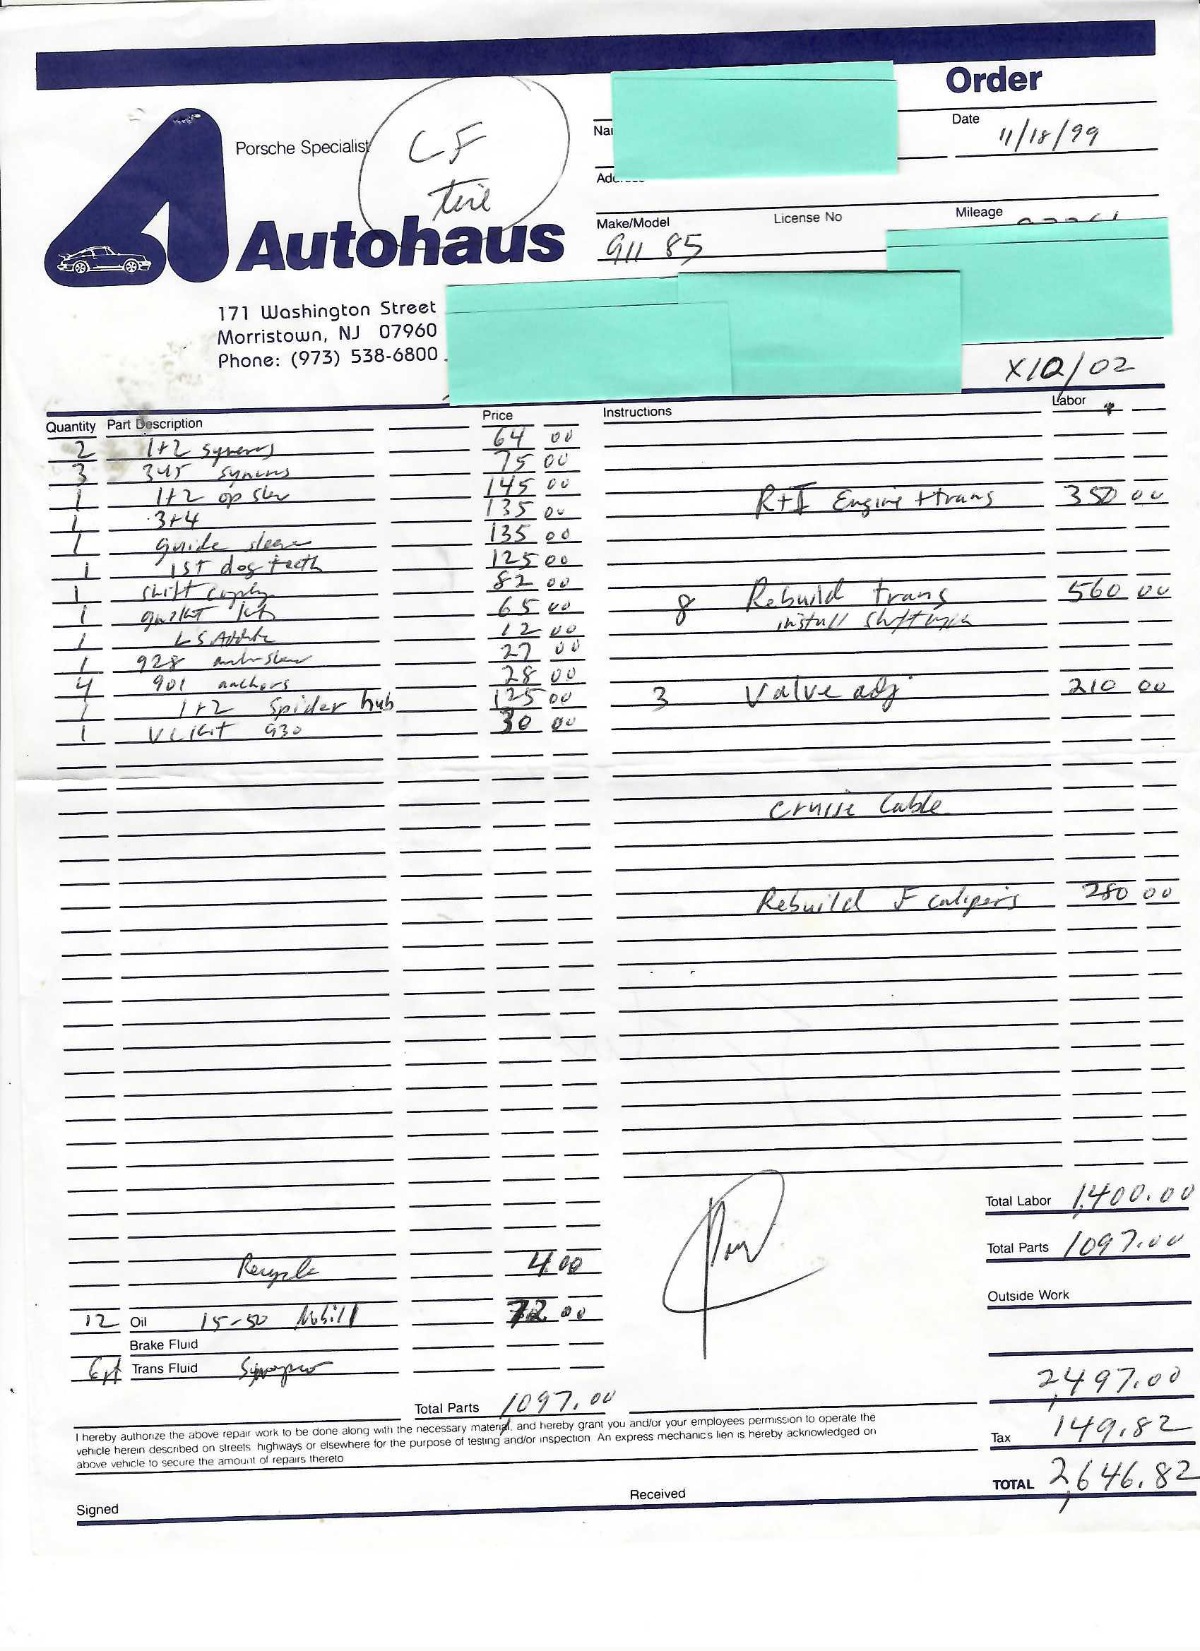 Order
Porsche Specialist
CF
tire
Autohaus
171 Washington Street
Morristown, NJ 07960
Phone: (973) 538-6800
Date 11/18/99
Make/Model 911 85
License No
Mileage
X10/02
Quantity Part Description Price Instructions Labor
2 1+2 syncros 64 00
3 345 syncros 75 00
1 1+2 op slev 145 00 R+I Engine + trans 350 00
1 3+4 135 00
1 guide sleeve 135 00
1 1ST dog teeth 125 00
1 Shift 82 00 8 Rebuild trans 560 00
1 65 00 install
1 LS 12 00
1 928 27 00
4 901 anchors 28 00 3 Valve adj 210 00
1 1+2 Spider hub 125 00
1 930 30 00
Cruise Cable
Rebuild F calipers 280 00
Total Labor 1,400.00
Total Parts 1097.00
Recycle 4.00
Outside Work
12 Oil 15-50 Mobil 1 72.00
Brake Fluid
Trans Fluid
2,497.00
Total Parts 1097.00
Tax 149.82
I hereby authorize the above repair work to be done along with the necessary material, and hereby grant you and/or your employees permission to operate the
vehicle herein described on streets highways or elsewhere for the purpose of testing and/or inspection An express mechanics lien is hereby acknowledged on
above vehicle to secure the amount of repairs thereto
TOTAL 2,646.82
Signed
Received